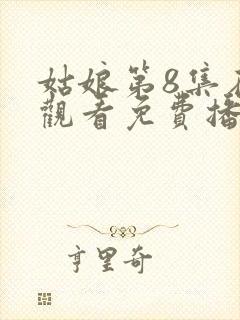 姑娘第8集
觀看免費播
亨里奇